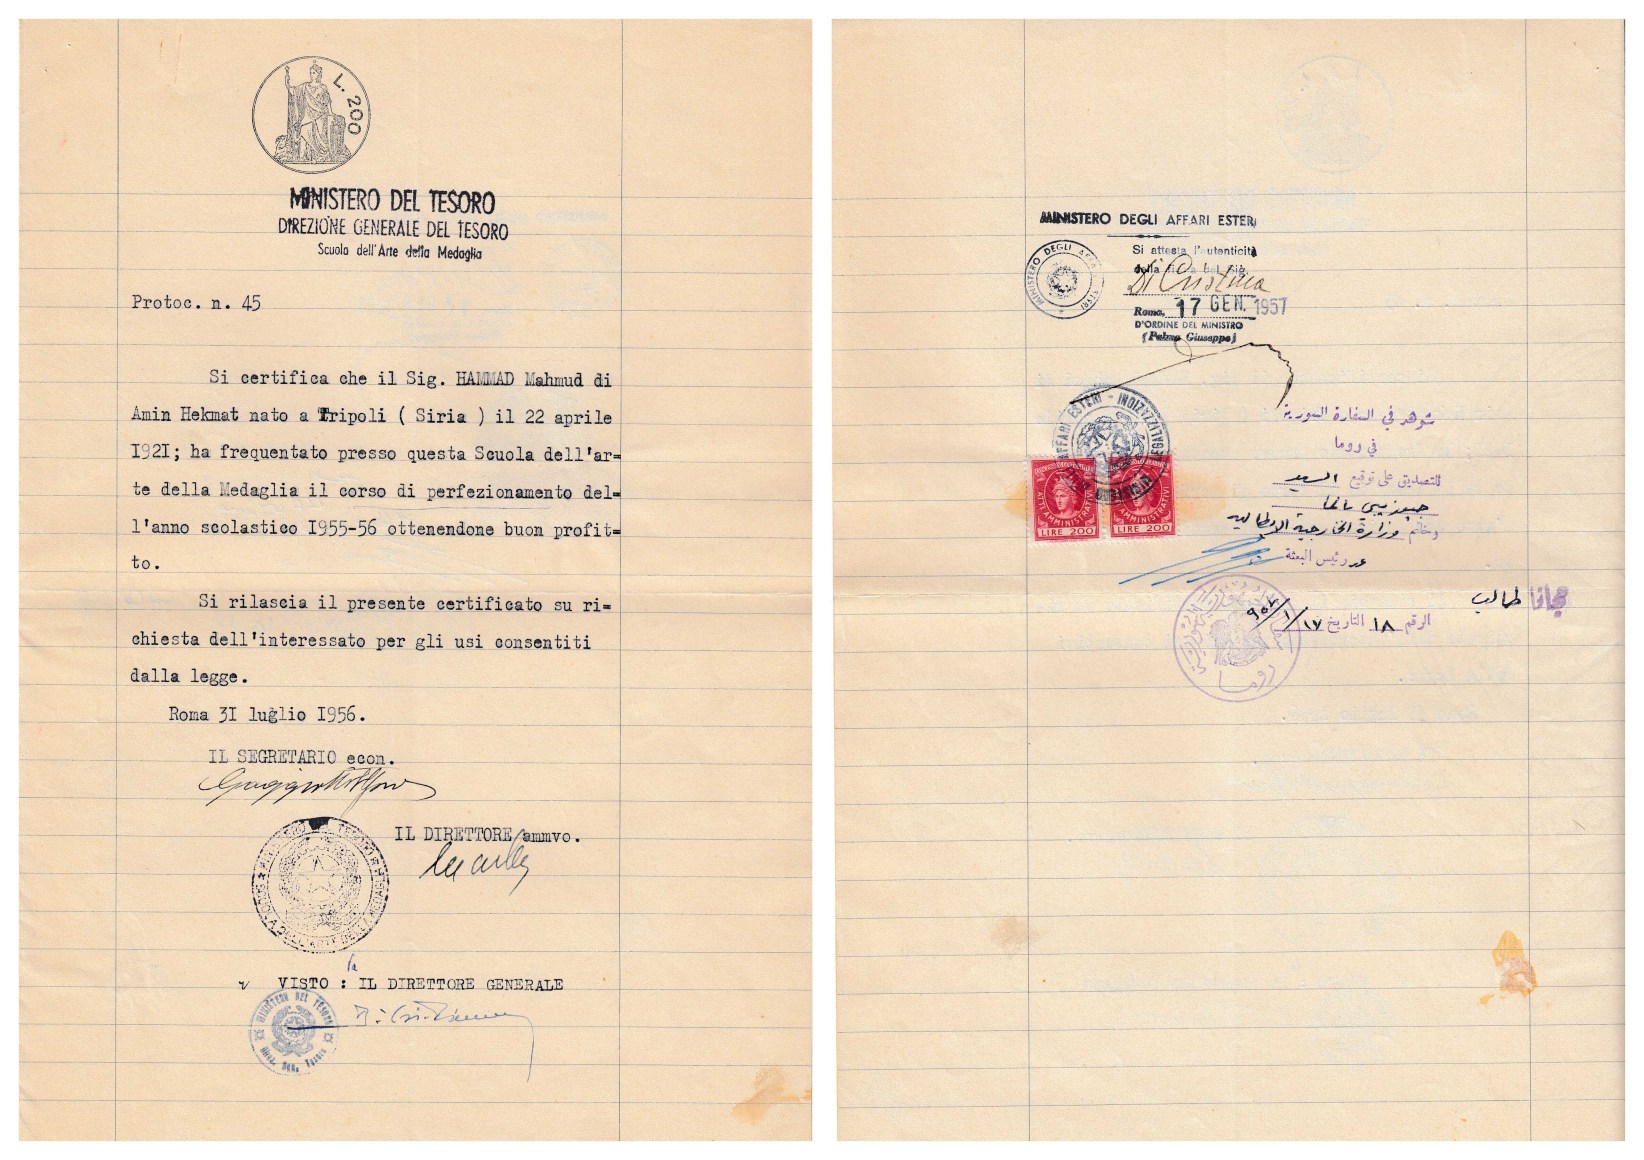 L. 200
MINISTERO DEL TESORO
DIREZIONE GENERALE DEL TESORO
Scuola dell'Arte della Medaglia
Protoc. n. 45
Si certifica che il Sig. HAMMAD Mahmud di
Amin Hekmat nato a Tripoli ( Siria ) il 22 aprile
I92I; ha frequentato presso questa Scuola dell'ar=
te della Medaglia il corso di perfezionamento del=
l'anno scolastico I955-56 ottenendone buon profit=
to.
Si rilascia il presente certificato su ri=
chiesta dell'interessato per gli usi consentiti
dalla legge.
Roma 3I luglio I956.
IL SEGRETARIO econ.
IL DIRETTORE ammvo.
SCUOLA DELL'ARTE DELLA MEDAGLIA
VISTO : IL DIRETTORE GENERALE
MINISTERO DEL TESORO
MINISTERO DEGLI AFFARI ESTERI
Si attesta l'autenticità
della firma del Sig.
Di Cristina
Roma, 17 GEN. 1957
D'ORDINE DEL MINISTRO
(Palma Giuseppe)
MINISTERO DEGLI AFFARI ESTERI
AFFARI ESTERI - LEGALIZZAZIONI
ATTI AMMINISTRATIVI
LIRE 200
ATTI AMMINISTRATIVI
LIRE 200
شوهد في السفارة السورية
في روما
للتصديق على توقيع السيد
جيوزيبي بالما
وخاتم وزارة الخارجية الايطالية
عن رئيس البعثة
مجانا طالب
الرقم ١٨ التاريخ ١٧/١/٩٥٧
روما